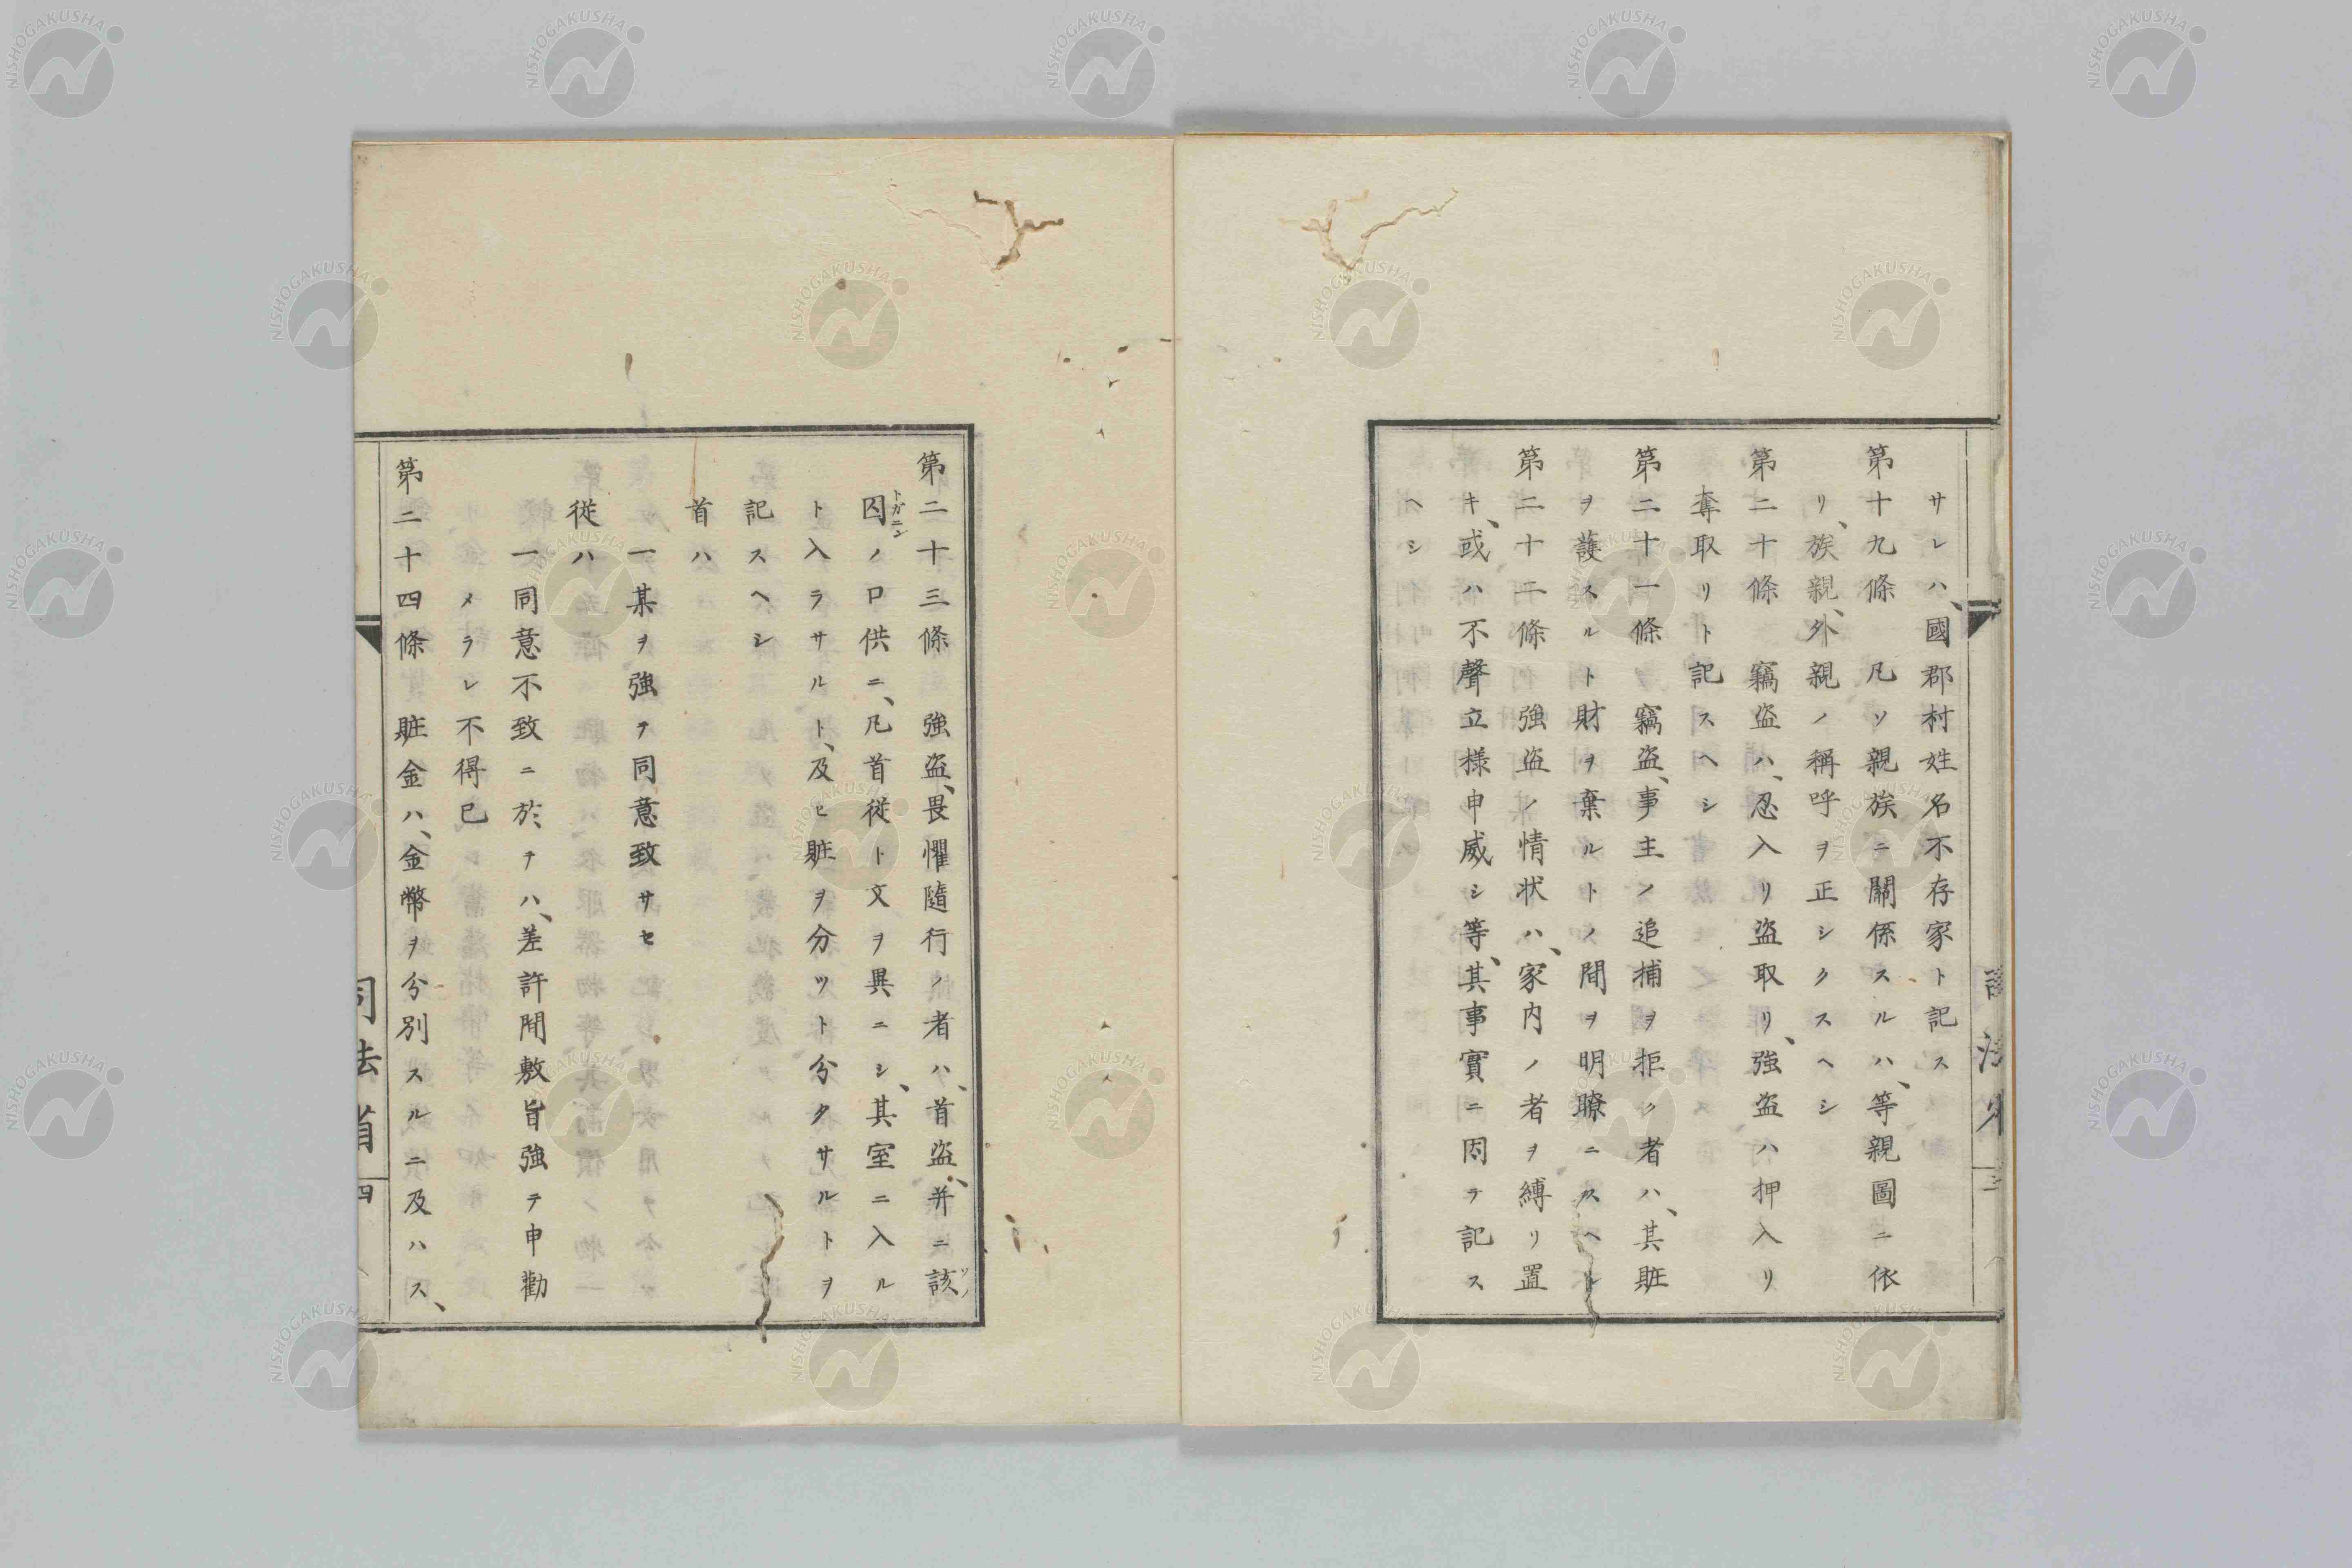 サレハ、國郡村姓名不存家ト記ス
第十九條 凡ソ親族ニ關係スルハ、等親圖ニ依
リ、族親、外親ノ稱呼ヲ正シクスヘシ
第二十條 竊盗ハ、忍入リ盗取リ、強盗ハ押入リ
奪取リト記スヘシ
第二十一條 竊盗、事主ノ追捕ヲ拒ク者ハ、其賍
ヲ護スルト財ヲ棄ルトノ間ヲ明瞭ニスヘシ
第二十二條 強盗ノ情状ハ、家内ノ者ヲ縛リ置
キ、或ハ不聲立様申威シ等、其事實ニ因テ記ス
ヘシ
第二十三條 強盗、畏懼隨行ノ者ハ、首盗、并ニ該
ソノ
囚ノ口供ニ、凡首従ト文ヲ異ニシ、其室ニ入ル
トガニン
ト入ラサルト、及ヒ賍ヲ分ツト分タサルトヲ
記スヘシ
首ハ
一某ヲ強テ同意致サセ
従ハ
一同意不致ニ於テハ、差許間敷旨強テ申勸
メラレ不得已
第二十四條 賍金ハ、金幣ヲ分別スルニ及ハス、
司法省
四
NISHOGAKUSHA